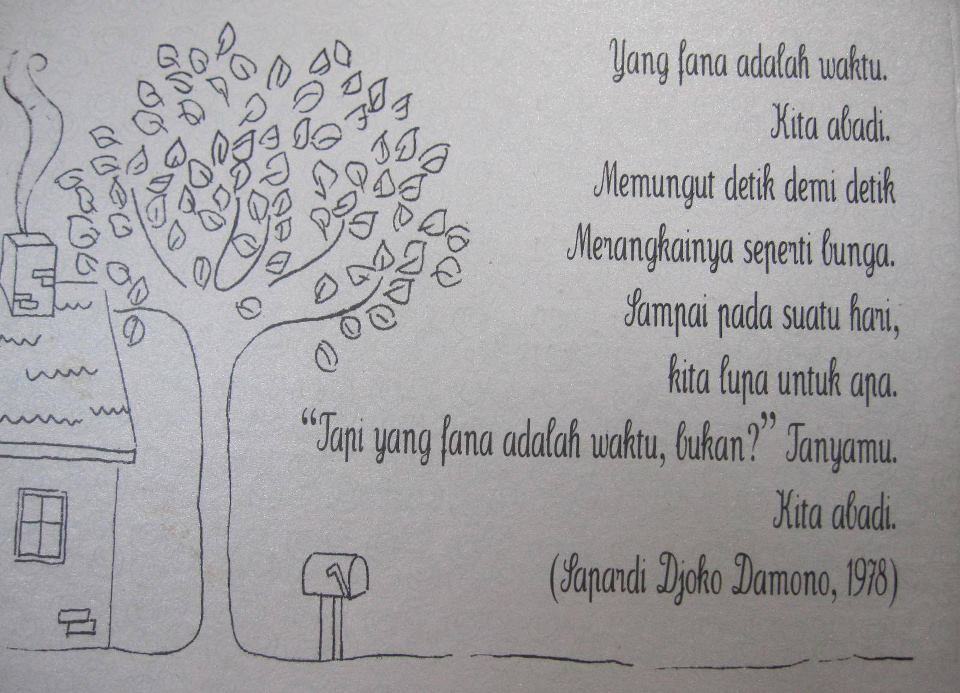 Yang fana adalah waktu.
Kita abadi.
Memungut detik demi detik
Merangkainya seperti bunga.
Sampai pada suatu hari,
kita lupa untuk apa.
“Tapi yang fana adalah waktu, bukan?” Tanyamu.
Kita abadi.
(Sapardi Djoko Damono, 1978)